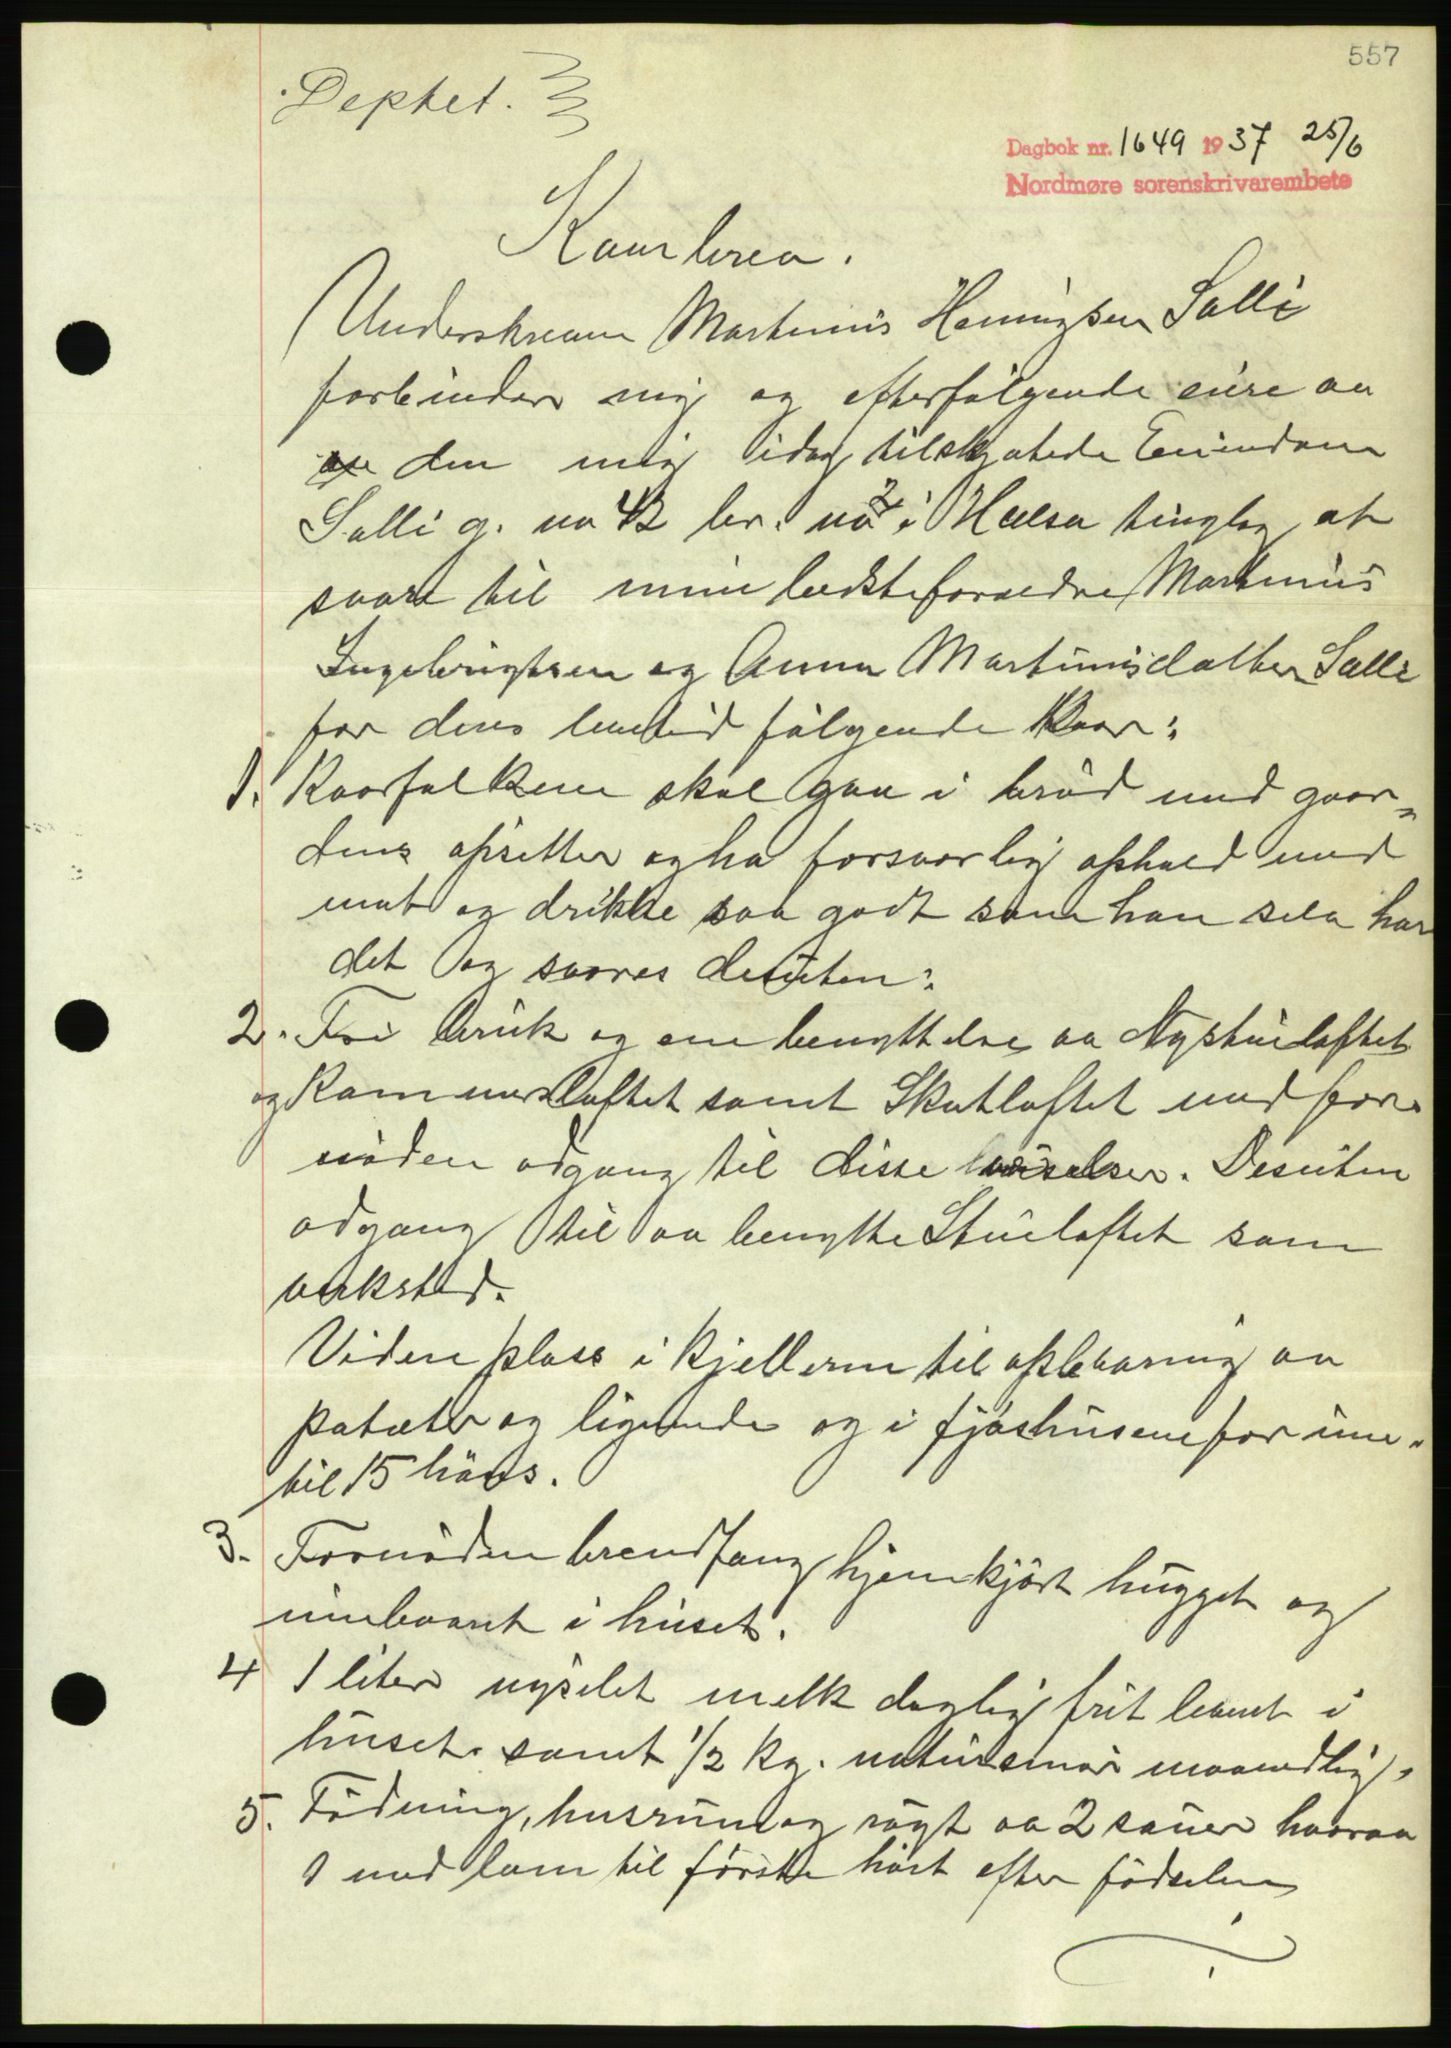 557
Depktet.
Dagbok nr. 1649 1937 25/6
Nordmøre sorenskrivarembete
Kaarbrev.
Underskreven Martinus Henningsen Salli
forbinder mig og efterfølgende eiere av
den mig idag tilskjøtede Eiendom
Salli g. no 42 br. no 2 i Halsa tinglag, at
svare til mine bedsteforældre Martinus
Ingebrigtsen og Anna Martinusdatter Salli
for deres levetid følgende Kaar:
1. Kaarfolkene skal gaa i brød med gaar-
dens opsitter og ha forsvarlig ophold med
mat og drikke saa godt som han selv har
det og svares desuten:
2. Fri bruk og ene benyttelse av Nystueloftet
og Kammersloftet samt Skotloftet med for-
nøden adgang til disse værelser. Desuten
adgang til aa benytte Stueloftet som
verksted.
Videre plass i kjelleren til opbevaring av
poteter og lignende og i fjøshusene for inn-
til 15 høns.
3. Fornøden brendfang hjemkjørt hugget og
innbaaret i huset.
4 1 liter nysilet melk daglig frit levert i
huset. samt 1/2 kg. natursmør maanedlig.
5. Fødning, husrum og røgt av 2 sauer hvorav
1 med lam til første høst efter fødselen